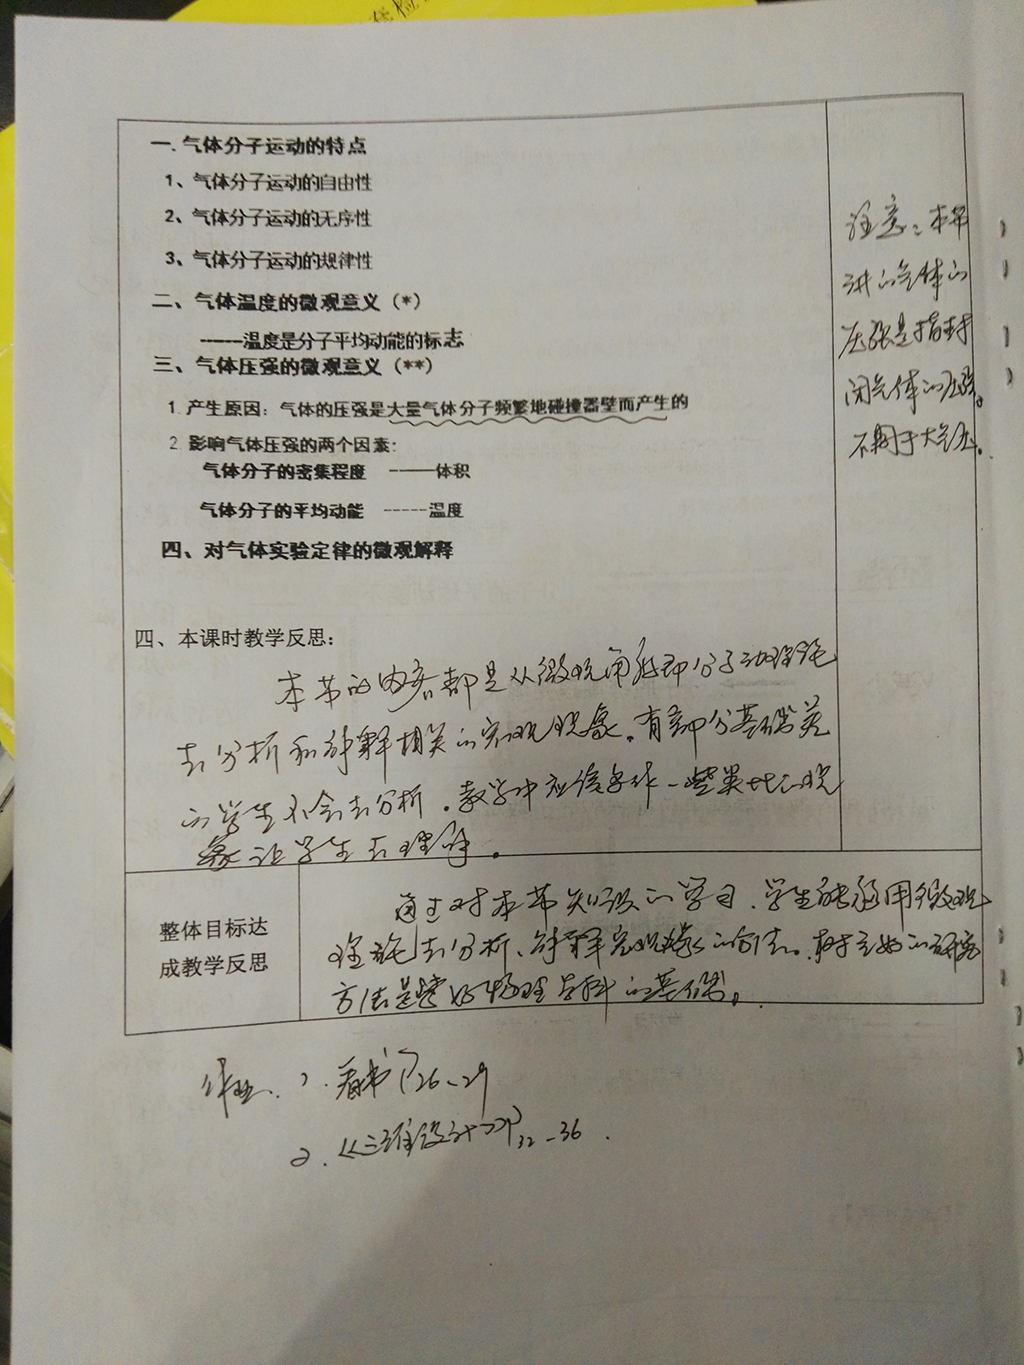 一. 气体分子运动的特点
1、气体分子运动的自由性
2、气体分子运动的无序性
3、气体分子运动的规律性
二、气体温度的微观意义（*）
------温度是分子平均动能的标志
三、气体压强的微观意义（**）
1. 产生原因：气体的压强是大量气体分子频繁地碰撞器壁而产生的
2 影响气体压强的两个因素：
气体分子的密集程度 ------体积
气体分子的平均动能 -----温度
四、对气体实验定律的微观解释
注意：本节
讲的气体的
压强是指封
闭气体的压强。
不同于大气压。
四、本课时教学反思：
本节的内容都是从微观角度即分子动理论
去分析和解释相关的宏观现象。有部分基础差
的学生不会去分析。教学中应该多作一些类比的现
象让学生去理解。
整体目标达
成教学反思
通过对本节知识的学习，学生能够用微观
理论去分析、解释宏观现象的方法。
方法是学好物理学科的基础。
作业：1. 看书P26-29
2.《三维设计》P32-36.